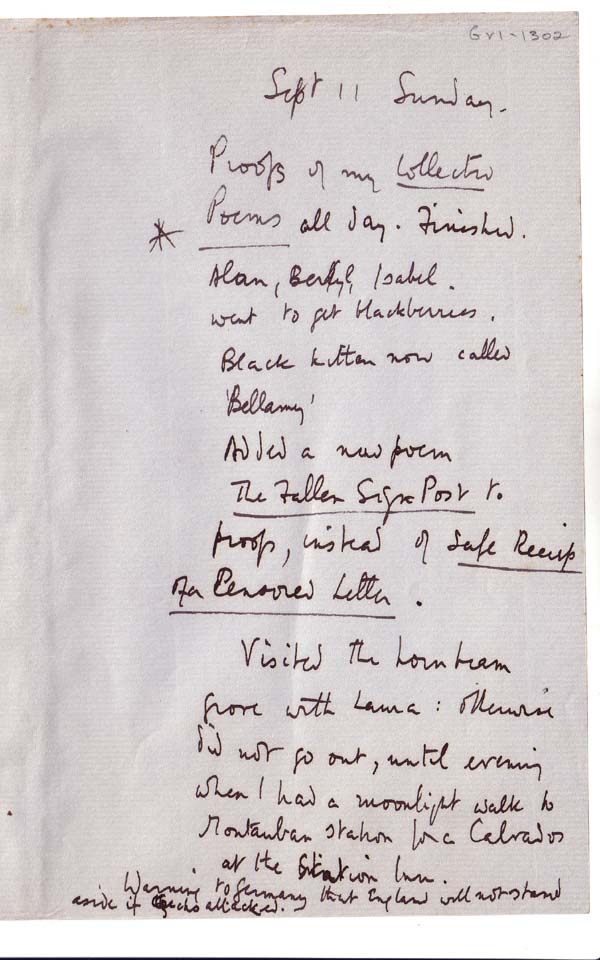 GV1-1302
Sept 11 Sunday.
Proofs of my Collected
* Poems all day. Finished.
Alan, Beryl, Isabel.
went to get blackberries.
Black kitten now called
'Bellamy'
Added a new poem
The Fallen Sign Post to
proofs, instead of Safe Receip
of a Censored Letter.
Visited the hornbeam
grove with Laura: otherwise
did not go out, until evening
when I had a moonlight walk to
Montauban station for a Calvados
at the Station Inn.
Warning to Germany that England will not stand
aside if Czechs attacked.